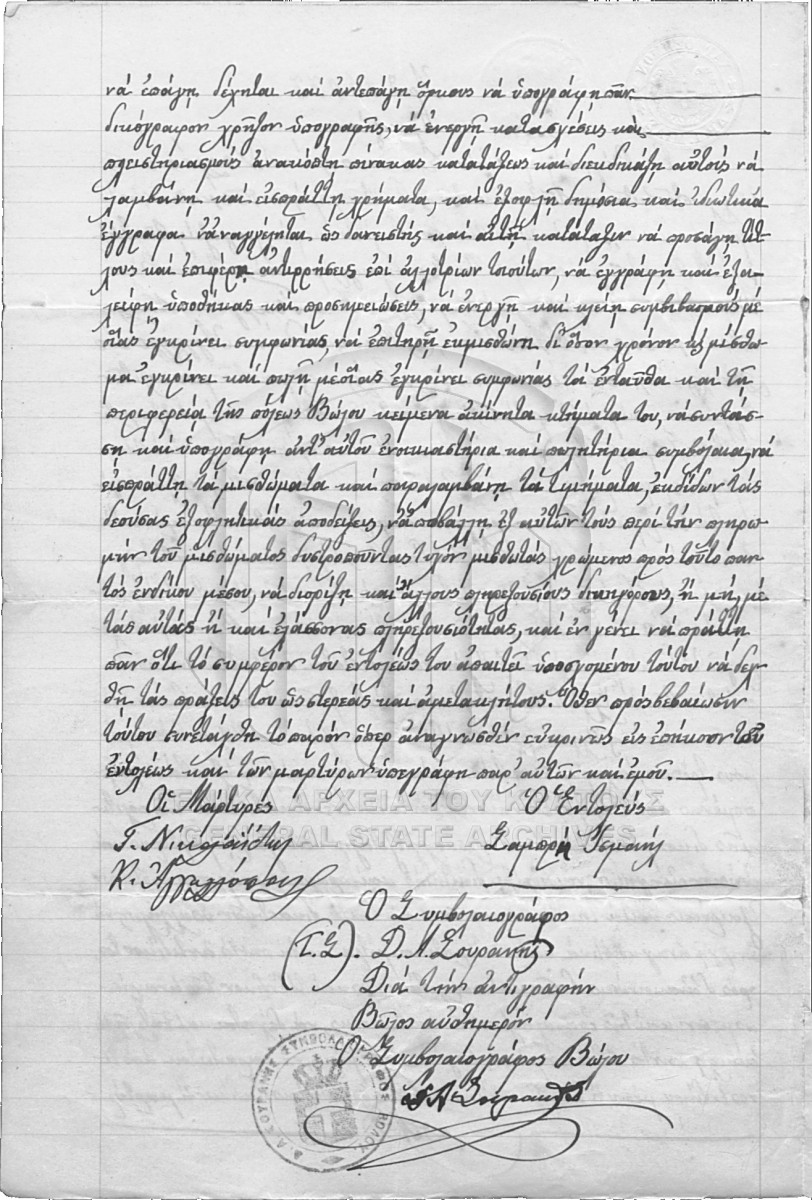 νά ἐπάγῃ δέχηται καί ἀντεπάγῃ ὅρκους νά ὑπογράφῃ πᾶν
δικόγραφον χρῇζον ὑπογραφῆς, νά ἐνεργῇ κατασχέσεις καί
πλειστηριασμούς ἀνακόπτῃ πίνακας κατατάξεως καί διεκδικάζῃ αὐτούς νά
λαμβάνῃ καί εἰσπράττῃ χρήματα, καί ἐξοφλῇ δημόσια καί ἰδιωτικά
ἔγγραφα νά ἀναγγέληται ὡς δανειστής καί αἰτῇ κατάταξιν νά προσάγῃ τίτ-
λους καί ἐπιφέρῃ ἀντιρρήσεις ἐπί ἀλλοτρίων τοιούτων, νά ἐγγράφῃ καί ἐξα-
λείφῃ ὑποθήκας καί προσημειώσεις, νά ἐνεργῇ καί κλείῃ συμβιβασμούς μέ
οἵας ἐγκρίνει συμφωνίας, νά ἐπιτηρῇ ἐκμισθώνῃ δι' ὅσον χρόνον καί μίσθω-
μα ἐγκρίνει καί πωλῇ μέ οἵας ἐγκρίνει συμφωνίας τά ἐνταῦθα καί τῇ
περιφερείᾳ τῆς πόλεως Βώλου κείμενα ἀκίνητα κτήματά του, νά συντάσ-
σῃ καί ὑπογράφῃ ἀντ' αὐτοῦ ἐνοικιαστήρια καί πωλητήρια συμβόλαια, νά
εἰσπράττῃ τά μισθώματα καί παραλαμβάνῃ τά τιμήματα, ἐκδίδων τάς
δεούσας ἐξοφλητικάς ἀποδείξεις, νά ἀποβάλλῃ ἐξ αὐτῶν τούς περί τήν πληρω-
μήν τοῦ μισθώματος δυστροποῦντας τυχόν μισθωτάς χρώμενος πρός τοῦτο παν-
τός ἐνδίκου μέσου, νά διορίζῃ καί ἄλλους πληρεξουσίους δικηγόρους, ἤ μή, μέ
τάς αὐτάς ἤ καί ἐλάσσονας πληρεξουσιότητας, καί ἐν γένει νά πράττῃ
πᾶν ὅτι τό συμφέρον τοῦ ἐντολέως του ἀπαιτεῖ ὑποσχομένου τούτου νά δεχ-
θῇ τάς πράξεις του ὡς στερεάς καί ἀμετακλήτους. Ὅθεν πρός βεβαίωσιν
τούτου συνετάχθη τό παρόν ὅπερ ἀναγνωσθέν εὐκρινῶς εἰς ἐπήκοον τοῦ
ἐντολέως καί τῶν μαρτύρων ὑπεγράφη παρ' αὐτῶν καί ἐμοῦ.
Οἱ Μάρτυρες Ὁ Ἐντολεύς
Γ. Νικολαΐδης Σαμπρῆ Ἰσμαήλ
Κ. Ἀγγελόπουλος
Ὁ Συμβολαιογράφος
(Τ.Σ). Δ. Α. Σουρανῆς
Διά τήν ἀντιγραφήν
Βῶλος αὐθημερόν
Ὁ Συμβολαιογράφος Βώλου
ΑΡΧΕΙΑ ΤΟΥ ΚΡΑΤΟΥΣ
GENERAL STATE ARCHIVES